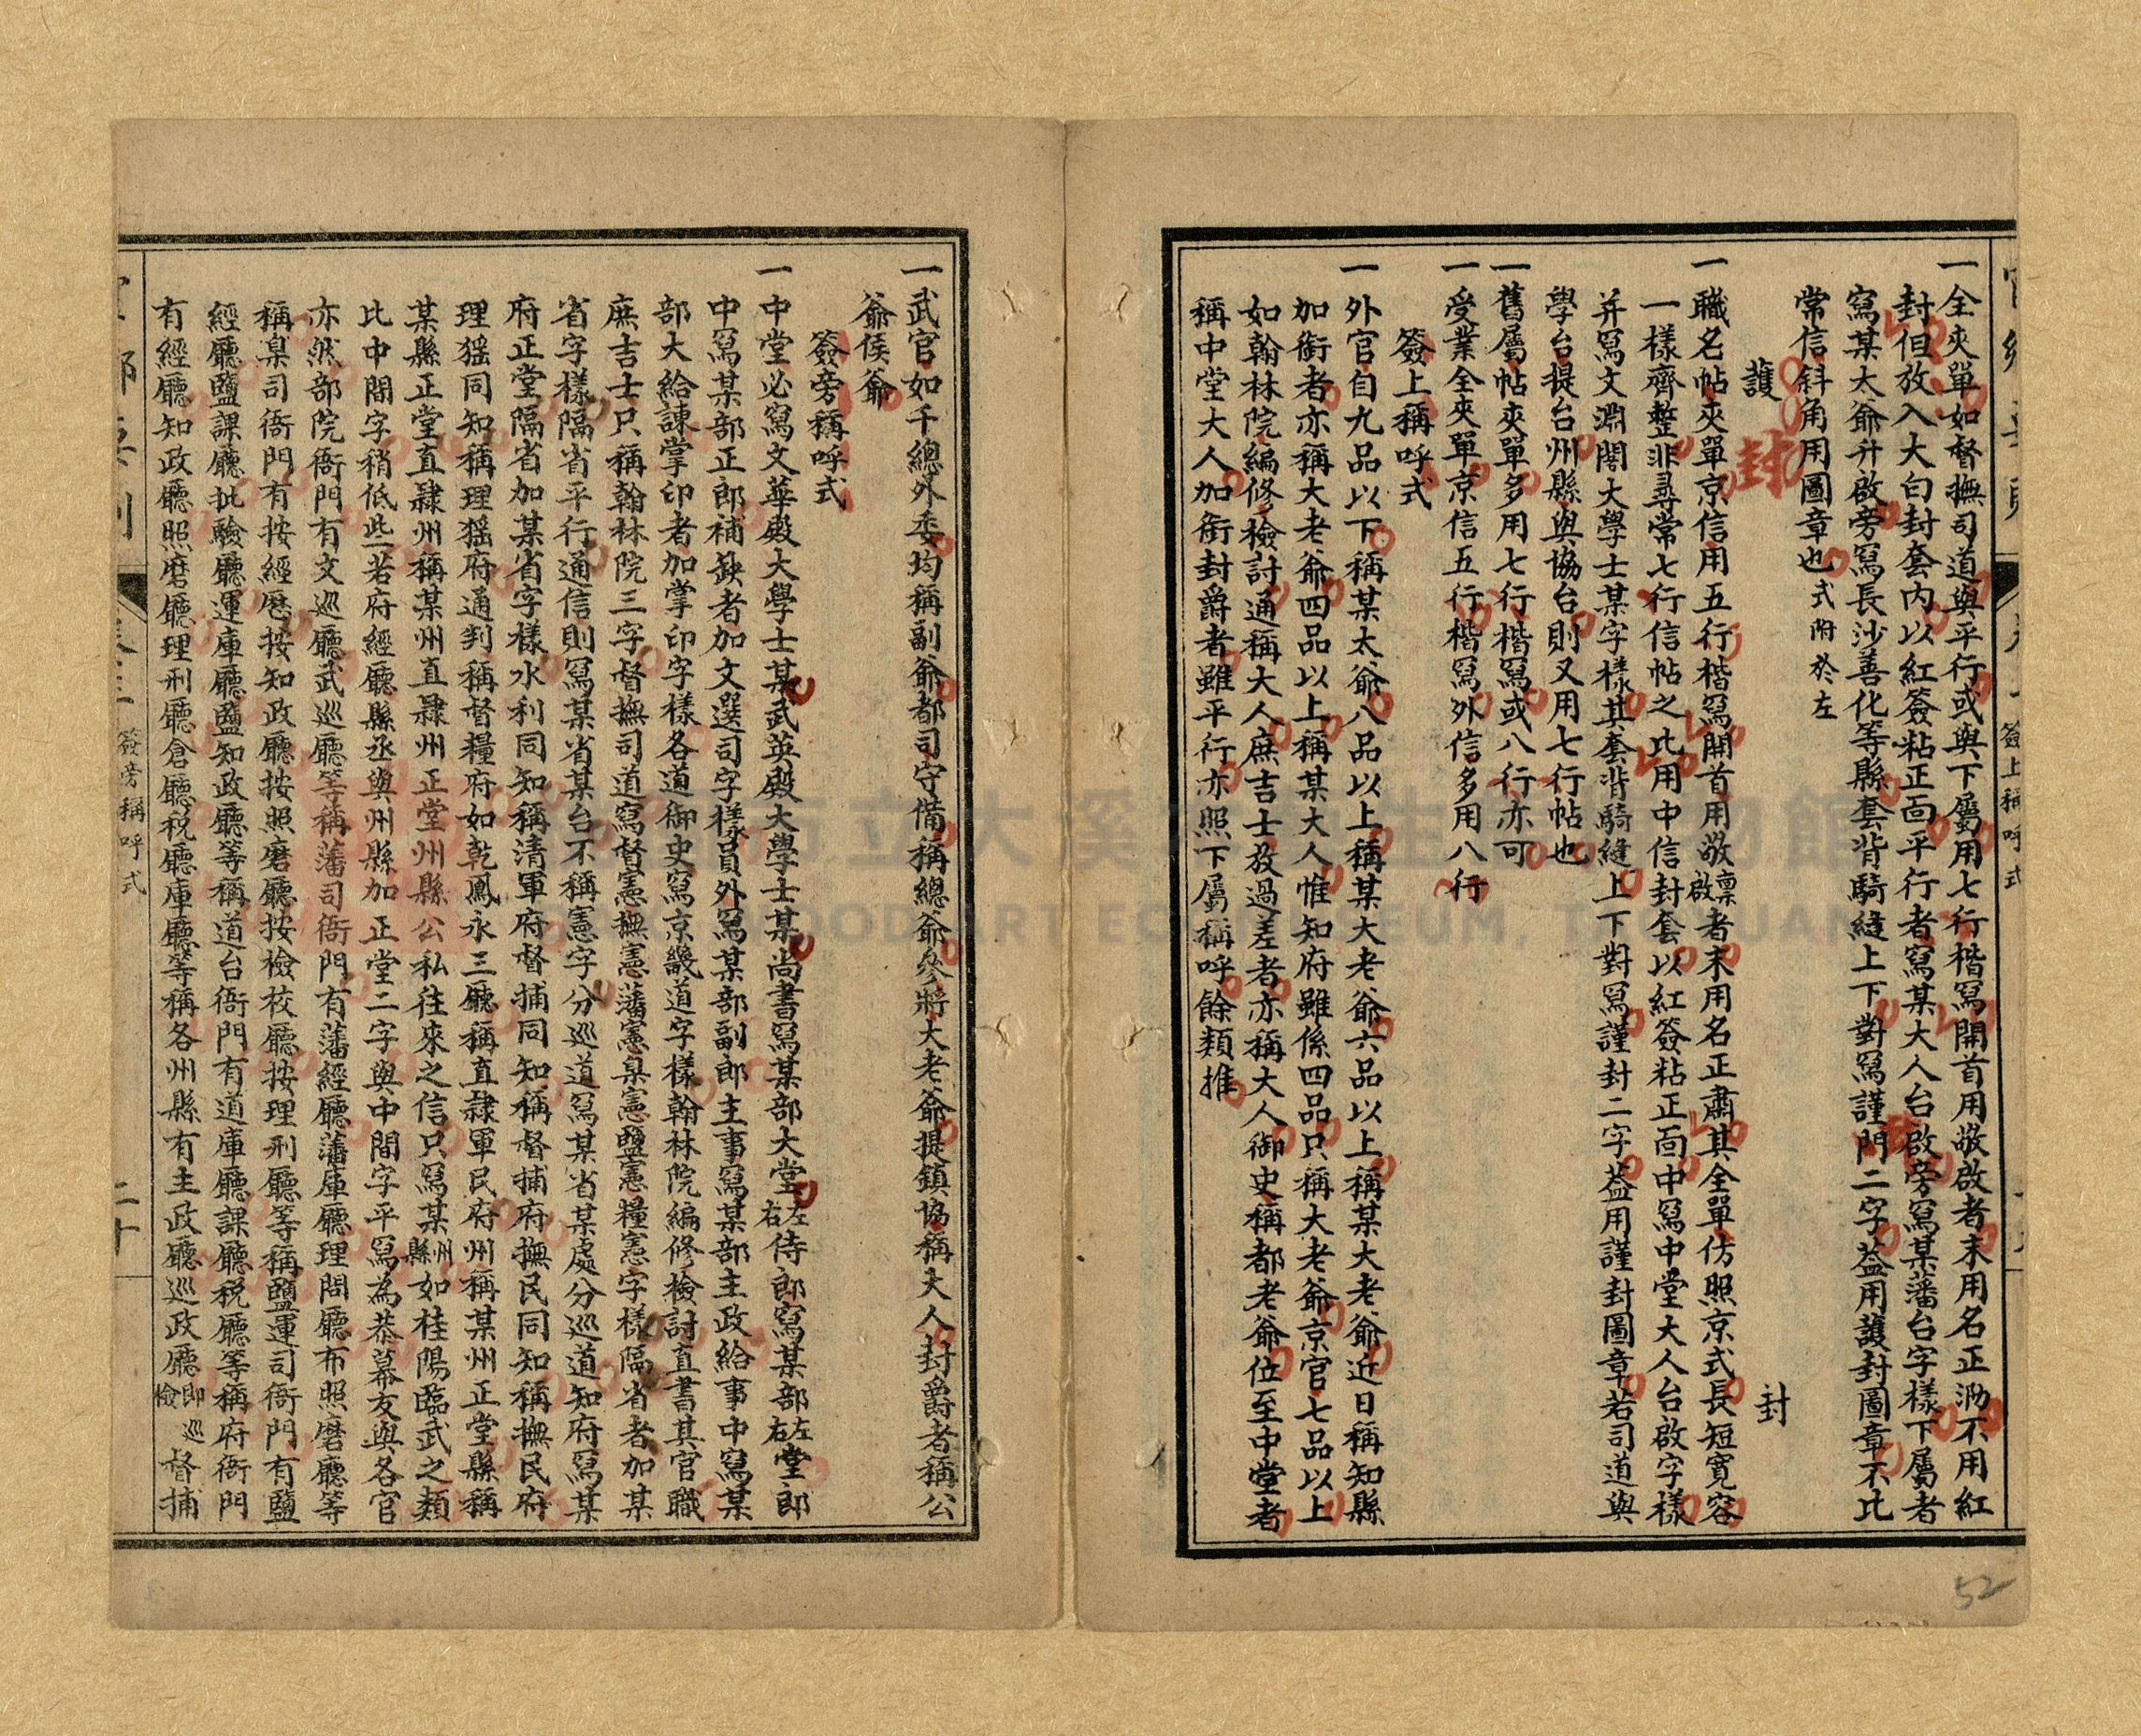 一全夾單如督撫司道與平行或與下屬用七行楷寫開首用敬啟者末用名正泐不用紅
封但放入大白封套內以紅簽粘正面平行者寫某大人台啟旁寫某藩台字樣下屬者
寫某太爺升啟旁寫長沙善化等縣套背騎縫上下對寫謹門二字葢用護封圖章不比
常信斜角用圖章也式附於左
護 封 封
一職名帖夾單京信用五行楷寫開首用敬稟啟者末用名正肅其全單仿照京式長短寬容
一樣齊整非尋常七行信帖之比用中信封套以紅簽粘正面中寫中堂大人台啟字樣
并寫文淵閣大學士某字樣其套背騎縫上下對寫謹封二字葢用謹封圖章若司道與
學台提台州縣與協台則又用七行帖也
一舊屬帖夾單多用七行楷寫或八行亦可
一受業全夾單京信五行楷寫外信多用八行
簽上稱呼式
一外官自九品以下稱某太爺八品以上稱某大老爺六品以上稱某大老爺近日稱知縣
加銜者亦稱大老爺四品以上稱某大人惟知府雖係四品只稱大老爺京官七品以上
如翰林院編修檢討通稱大人庶吉士放過差者亦稱大人御史稱都老爺位至中堂者
稱中堂大人加銜封爵者雖平行亦照下屬稱呼餘類推
簽上稱呼式
52
一武官如千總外委均稱副爺都司守備稱總爺參將大老爺提鎮協稱大人封爵者稱公
爺侯爺
簽旁稱呼式
一中堂必寫文華殿大學士某武英殿大學士某尚書寫某部大堂左右侍郎寫某部左右堂郎
中寫某部正郎補缺者加文選司字樣員外寫某部副郎主事寫某部主政給事中寫某
部大給諫掌印者加掌印字樣各道御史寫京畿道字樣翰林院編修檢討直書其官職
庶吉士只稱翰林院三字督撫司道寫督憲撫憲藩憲臬憲鹽憲糧憲字樣隔省者加某
省字樣隔省平行通信則寫某省某台不稱憲字分巡道寫某省某處分巡道知府寫某
府正堂隔省加某省字樣水利同知稱清軍府督捕同知稱督捕府撫民同知稱撫民府
理猺同知稱理猺府通判稱督糧府如乾鳳永三廳稱直隸軍民府州稱某州正堂縣稱
某縣正堂直隸州稱某州直隸州正堂州縣公私往來之信只寫某州縣如桂陽臨武之類
比中間字稍低些若府經廳縣丞與州縣加正堂二字與中間字平寫為恭幕友與各官
亦然部院衙門有文巡廳武巡廳等稱藩司衙門有藩經廳藩庫廳理問廳布照磨廳等
稱臬司衙門有按經歷按知政廳按照磨廳按檢校廳按理刑廳等稱鹽運司衙門有鹽
經廳鹽課廳批驗廳運庫廳鹽知政廳等稱道台衙門有道庫廳課廳稅廳等稱府衙門
有經廳知政廳照磨廳理刑廳倉廳稅廳庫廳等稱各州縣有主政廳巡政廳即巡檢督捕
簽旁稱呼式
二十